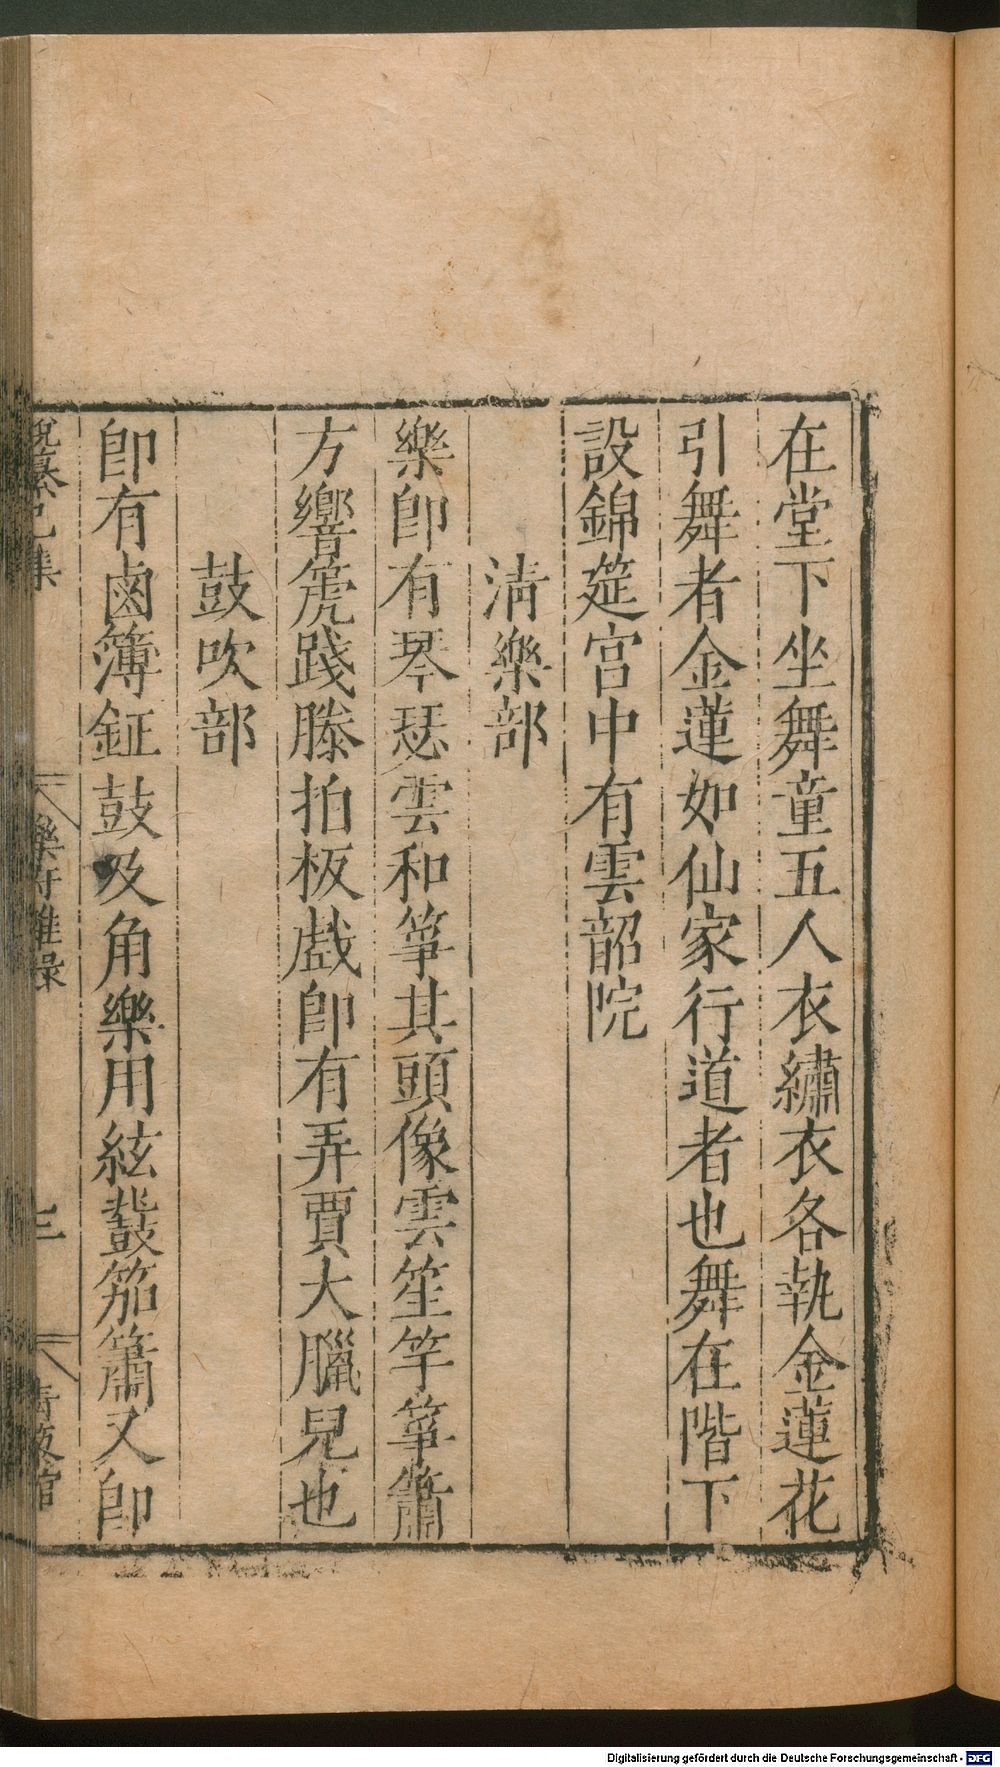 在堂下坐舞童五人衣繡衣各執金蓮花
引舞者金蓮如仙家行道者也舞在階下
設錦筵宫中有雲韶院
清樂部
樂卽有琴瑟雲和箏其頭像雲笙竽箏簫
方響箎踐膝拍板戲卽有弄賈大臘兒也
鼓吹部
卽有鹵簿鉦鼓及角樂用絃鼗笳簫又卽
說纂已集
樂府雜錄
三
Digitalisierung gefördert durch die Deutsche Forschungsgemeinschaft - DFG